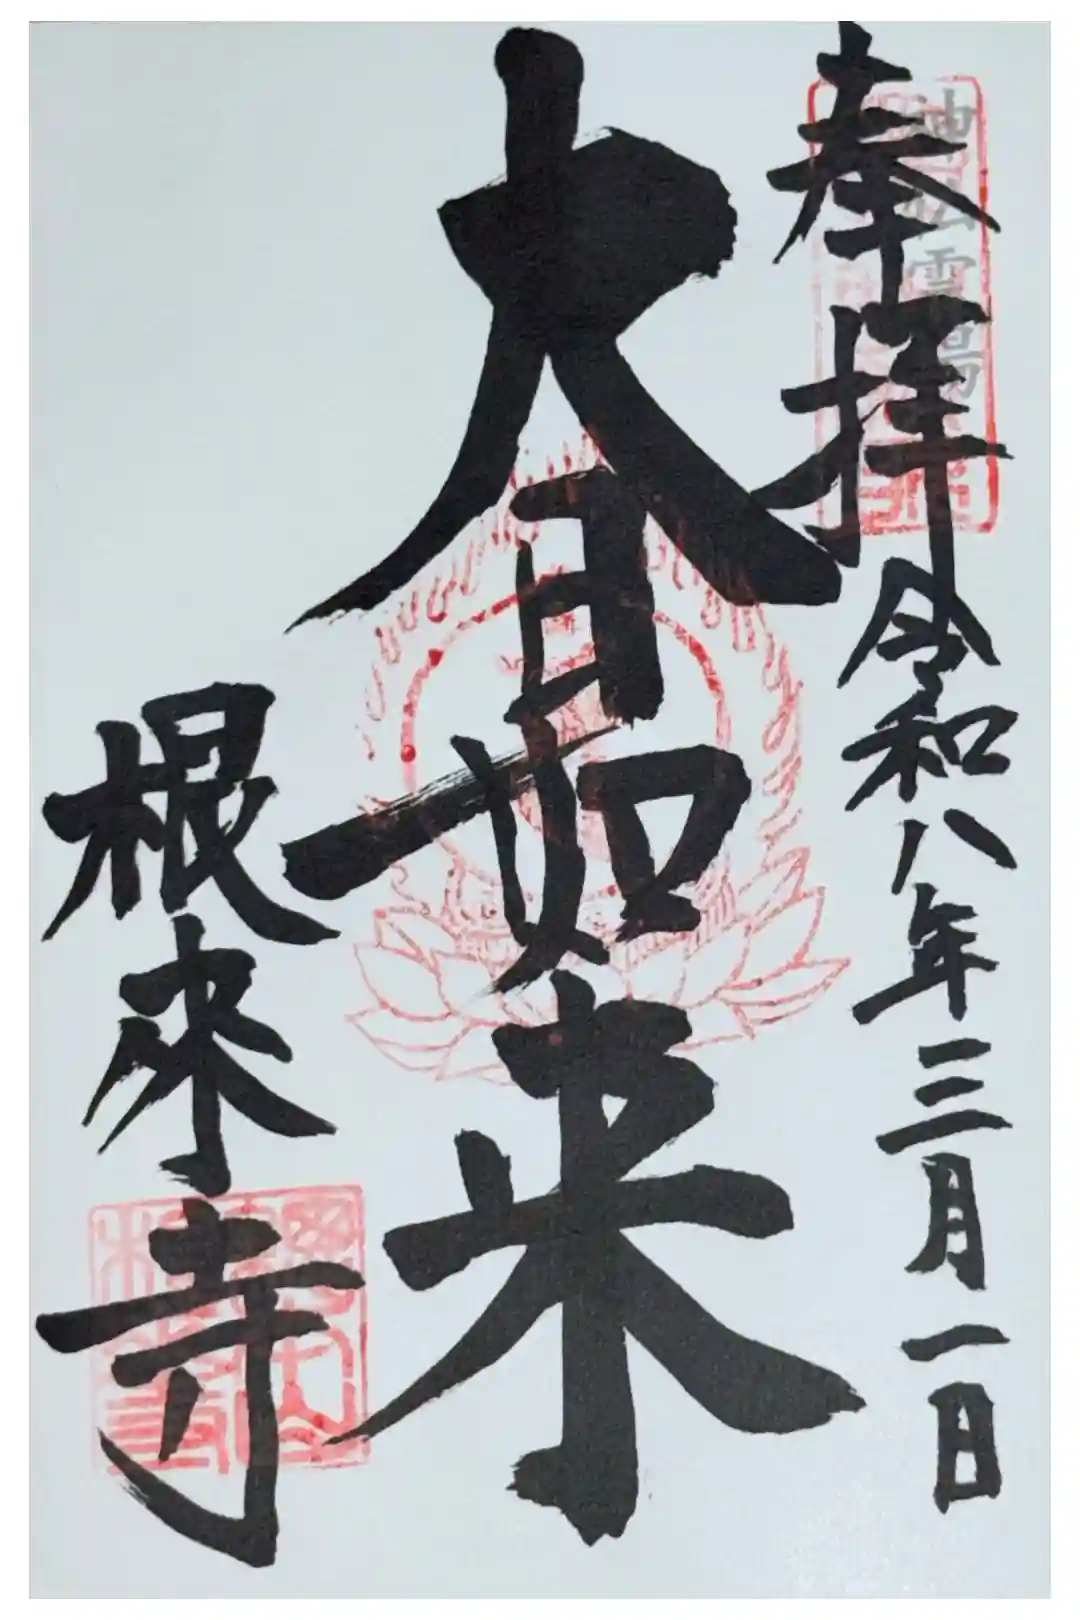 奉拝 令和八年三月一日
神仏霊場
大日如来
根來寺